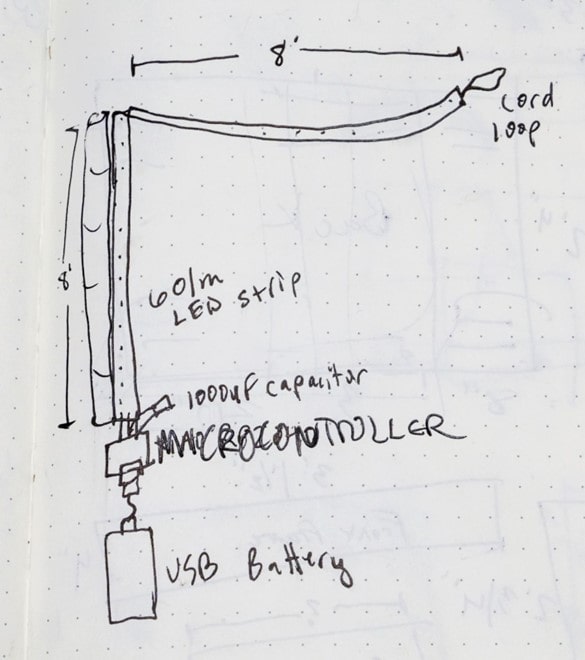 8'
cord
loop
8'
60/m
LED strip
1000uF capacitor
MICROCONTROLLER
USB Battery